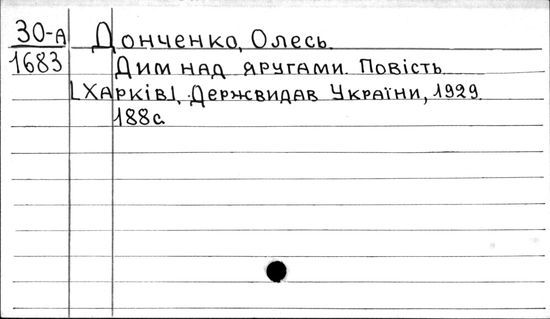 30-А Донченко, Олесь.
1683 Дим над яругами. Повість.
[Харків], Держвидав України, 1929.
188с.